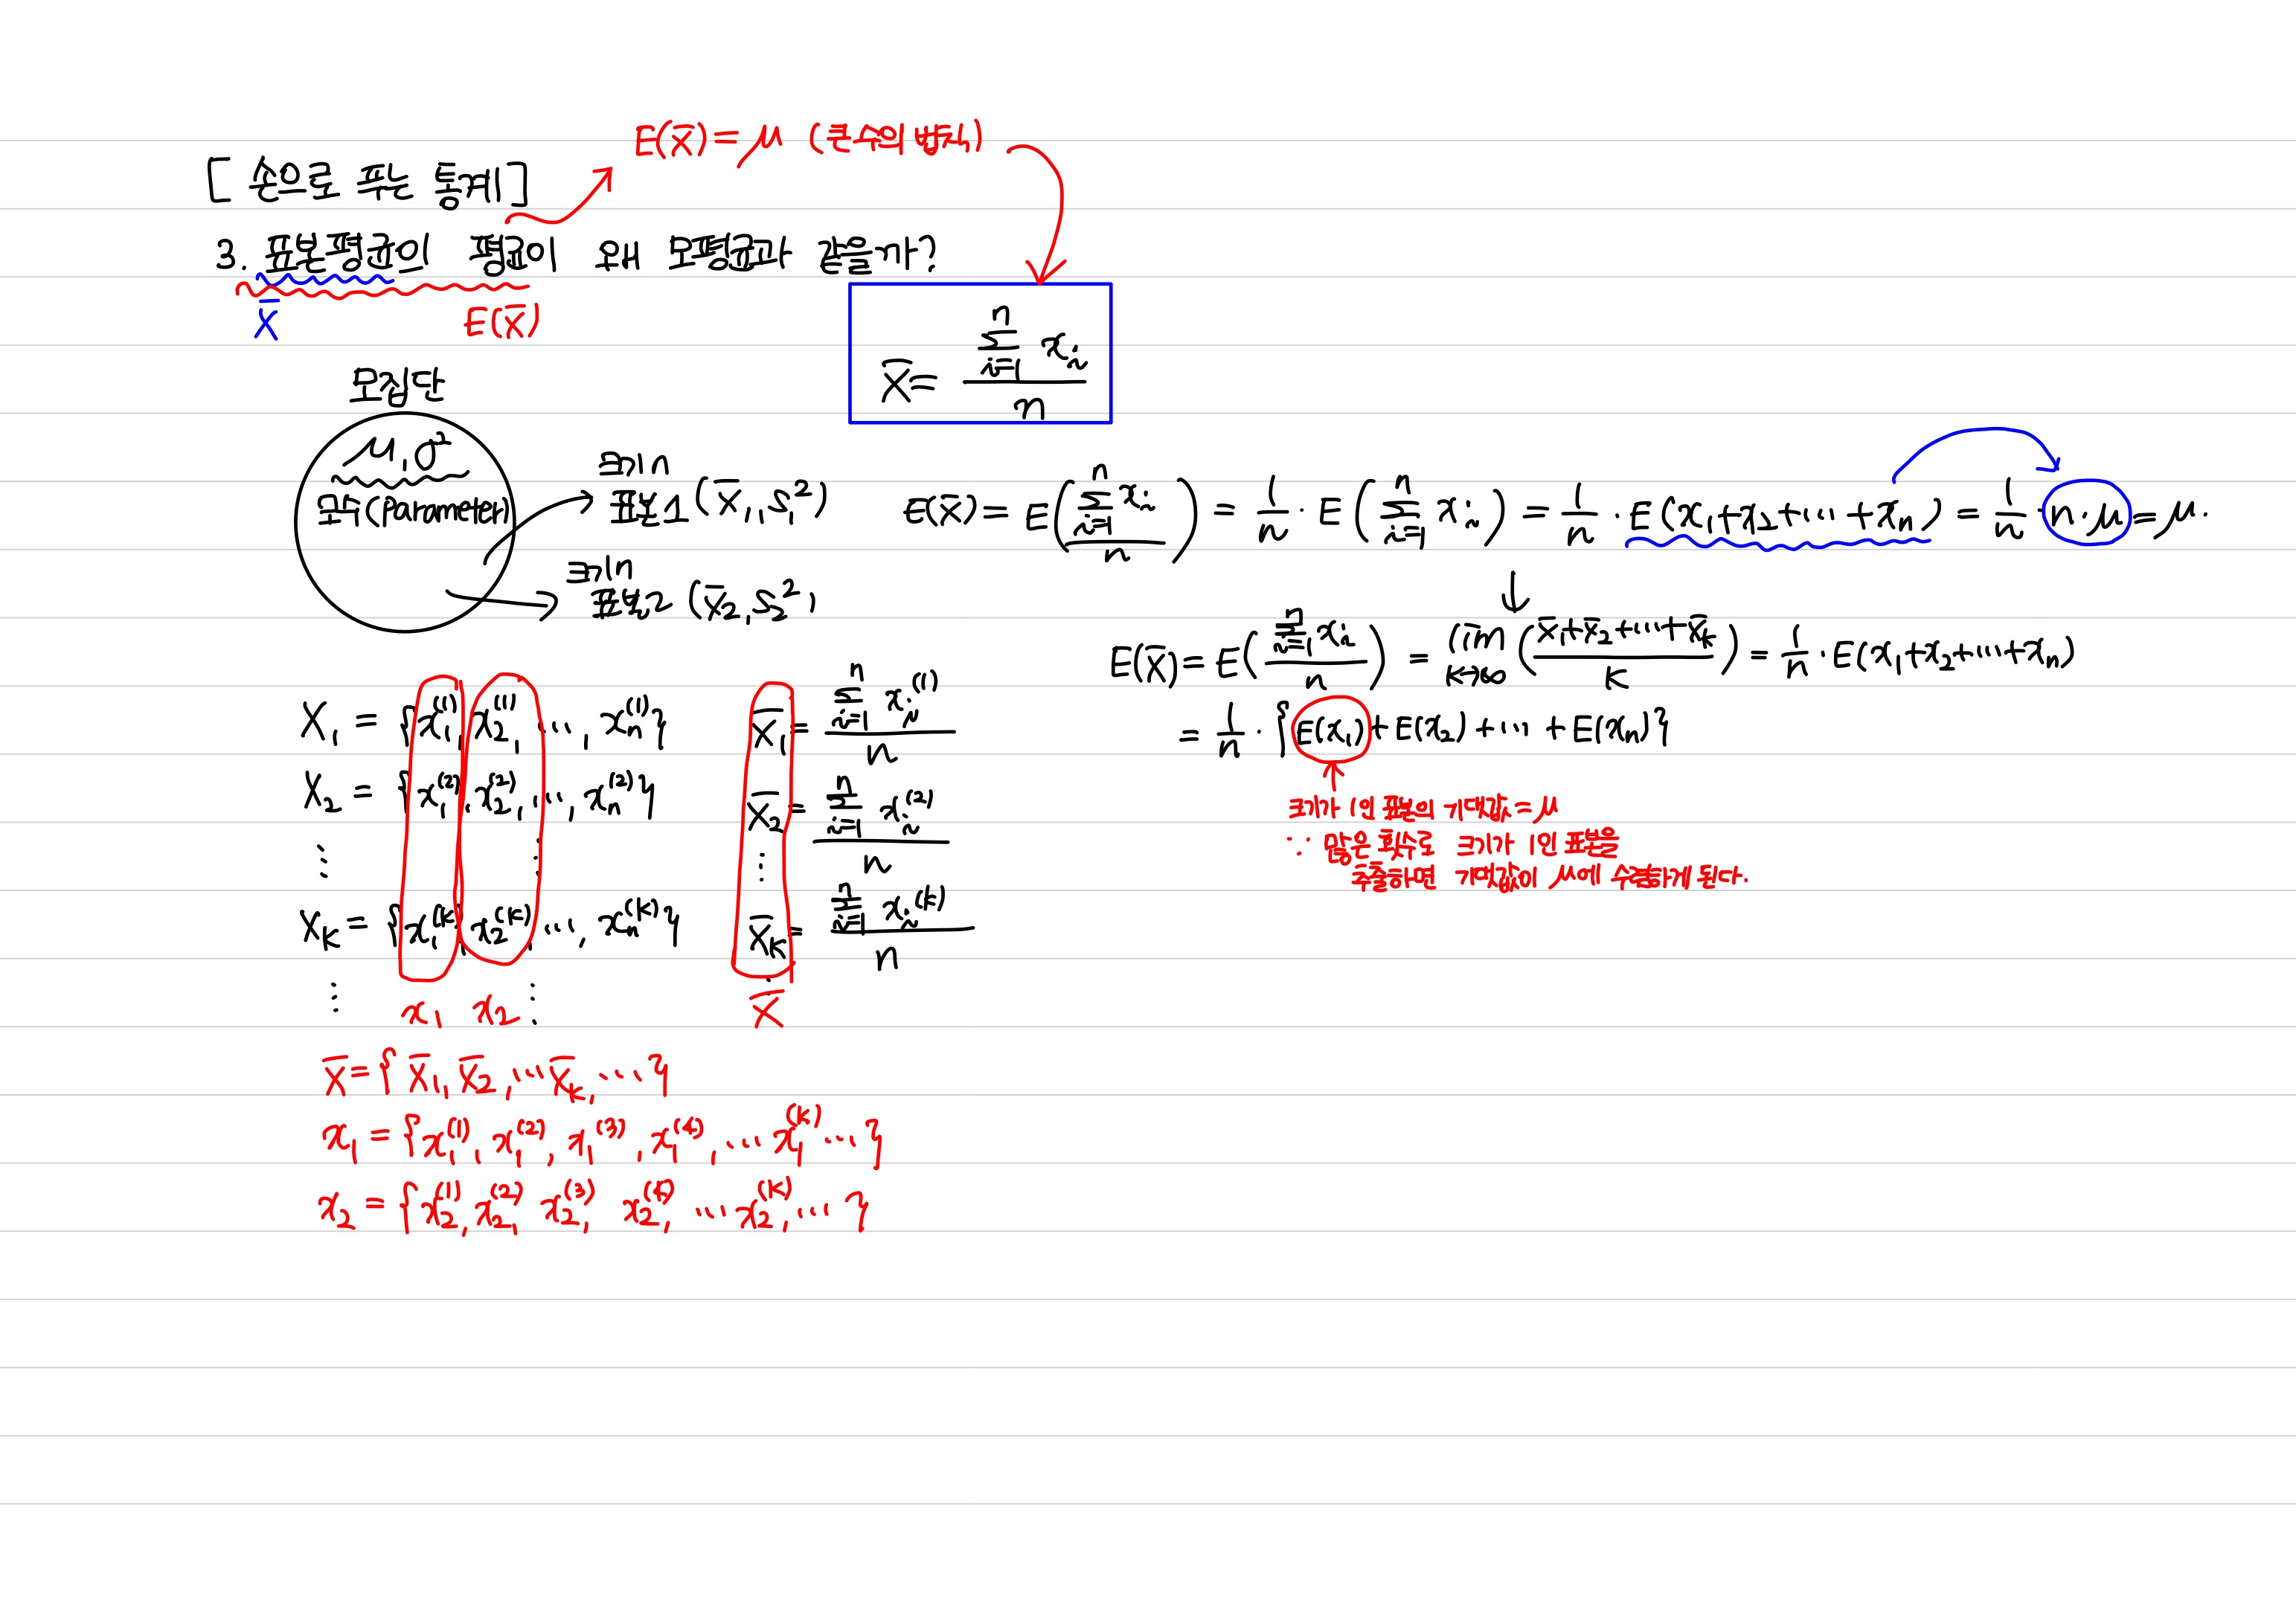 E(x̄) = μ (큰수의 법칙)
[손으로 푸는 통계]
3. 표본평균의 평균이 왜 모평균과 같을까?
x̄ E(x̄)
x̄ = Σ(i=1→n) xᵢ / n
모집단
μ, σ²
모수 (parameter)
크기 n
표본1 (x̄₁, s₁²)
크기 n
표본2 (x̄₂, s₂²)
E(x̄) = E(Σ(i=1→n) xᵢ / n) = 1/n · E(Σ(i=1→n) xᵢ) = 1/n · E(x₁+x₂+…+xₙ) = 1/n · n·μ = μ.
E(x̄) = E(Σ(i=1→n) xᵢ / n) = lim(k→∞) ((x̄₁+x̄₂+…+x̄ₖ) / k) = 1/n · E(x₁+x₂+…+xₙ)
= 1/n · {E(x₁) + E(x₂) + … + E(xₙ)}
크기가 1인 표본의 기댓값 = μ
∵ 많은 횟수로 크기가 1인 표본을
추출하면 기댓값이 μ에 수렴하게 된다.
X₁ = {x₁⁽¹⁾, x₂⁽¹⁾, …, xₙ⁽¹⁾} x̄₁ = Σ(i=1→n) xᵢ⁽¹⁾ / n
X₂ = {x₁⁽²⁾, x₂⁽²⁾, …, xₙ⁽²⁾} x̄₂ = Σ(i=1→n) xᵢ⁽²⁾ / n
⋮ ⋮ ⋮
Xₖ = {x₁⁽ᵏ⁾, x₂⁽ᵏ⁾, …, xₙ⁽ᵏ⁾} x̄ₖ = Σ(i=1→n) xᵢ⁽ᵏ⁾ / n
⋮ x₁ x₂ ⋮ x̄
x̄ = {x̄₁, x̄₂, … x̄ₖ, …}
x₁ = {x₁⁽¹⁾, x₁⁽²⁾, x₁⁽³⁾, x₁⁽⁴⁾, … x₁⁽ᵏ⁾ …}
x₂ = {x₂⁽¹⁾, x₂⁽²⁾, x₂⁽³⁾, x₂⁽⁴⁾, … x₂⁽ᵏ⁾, …}